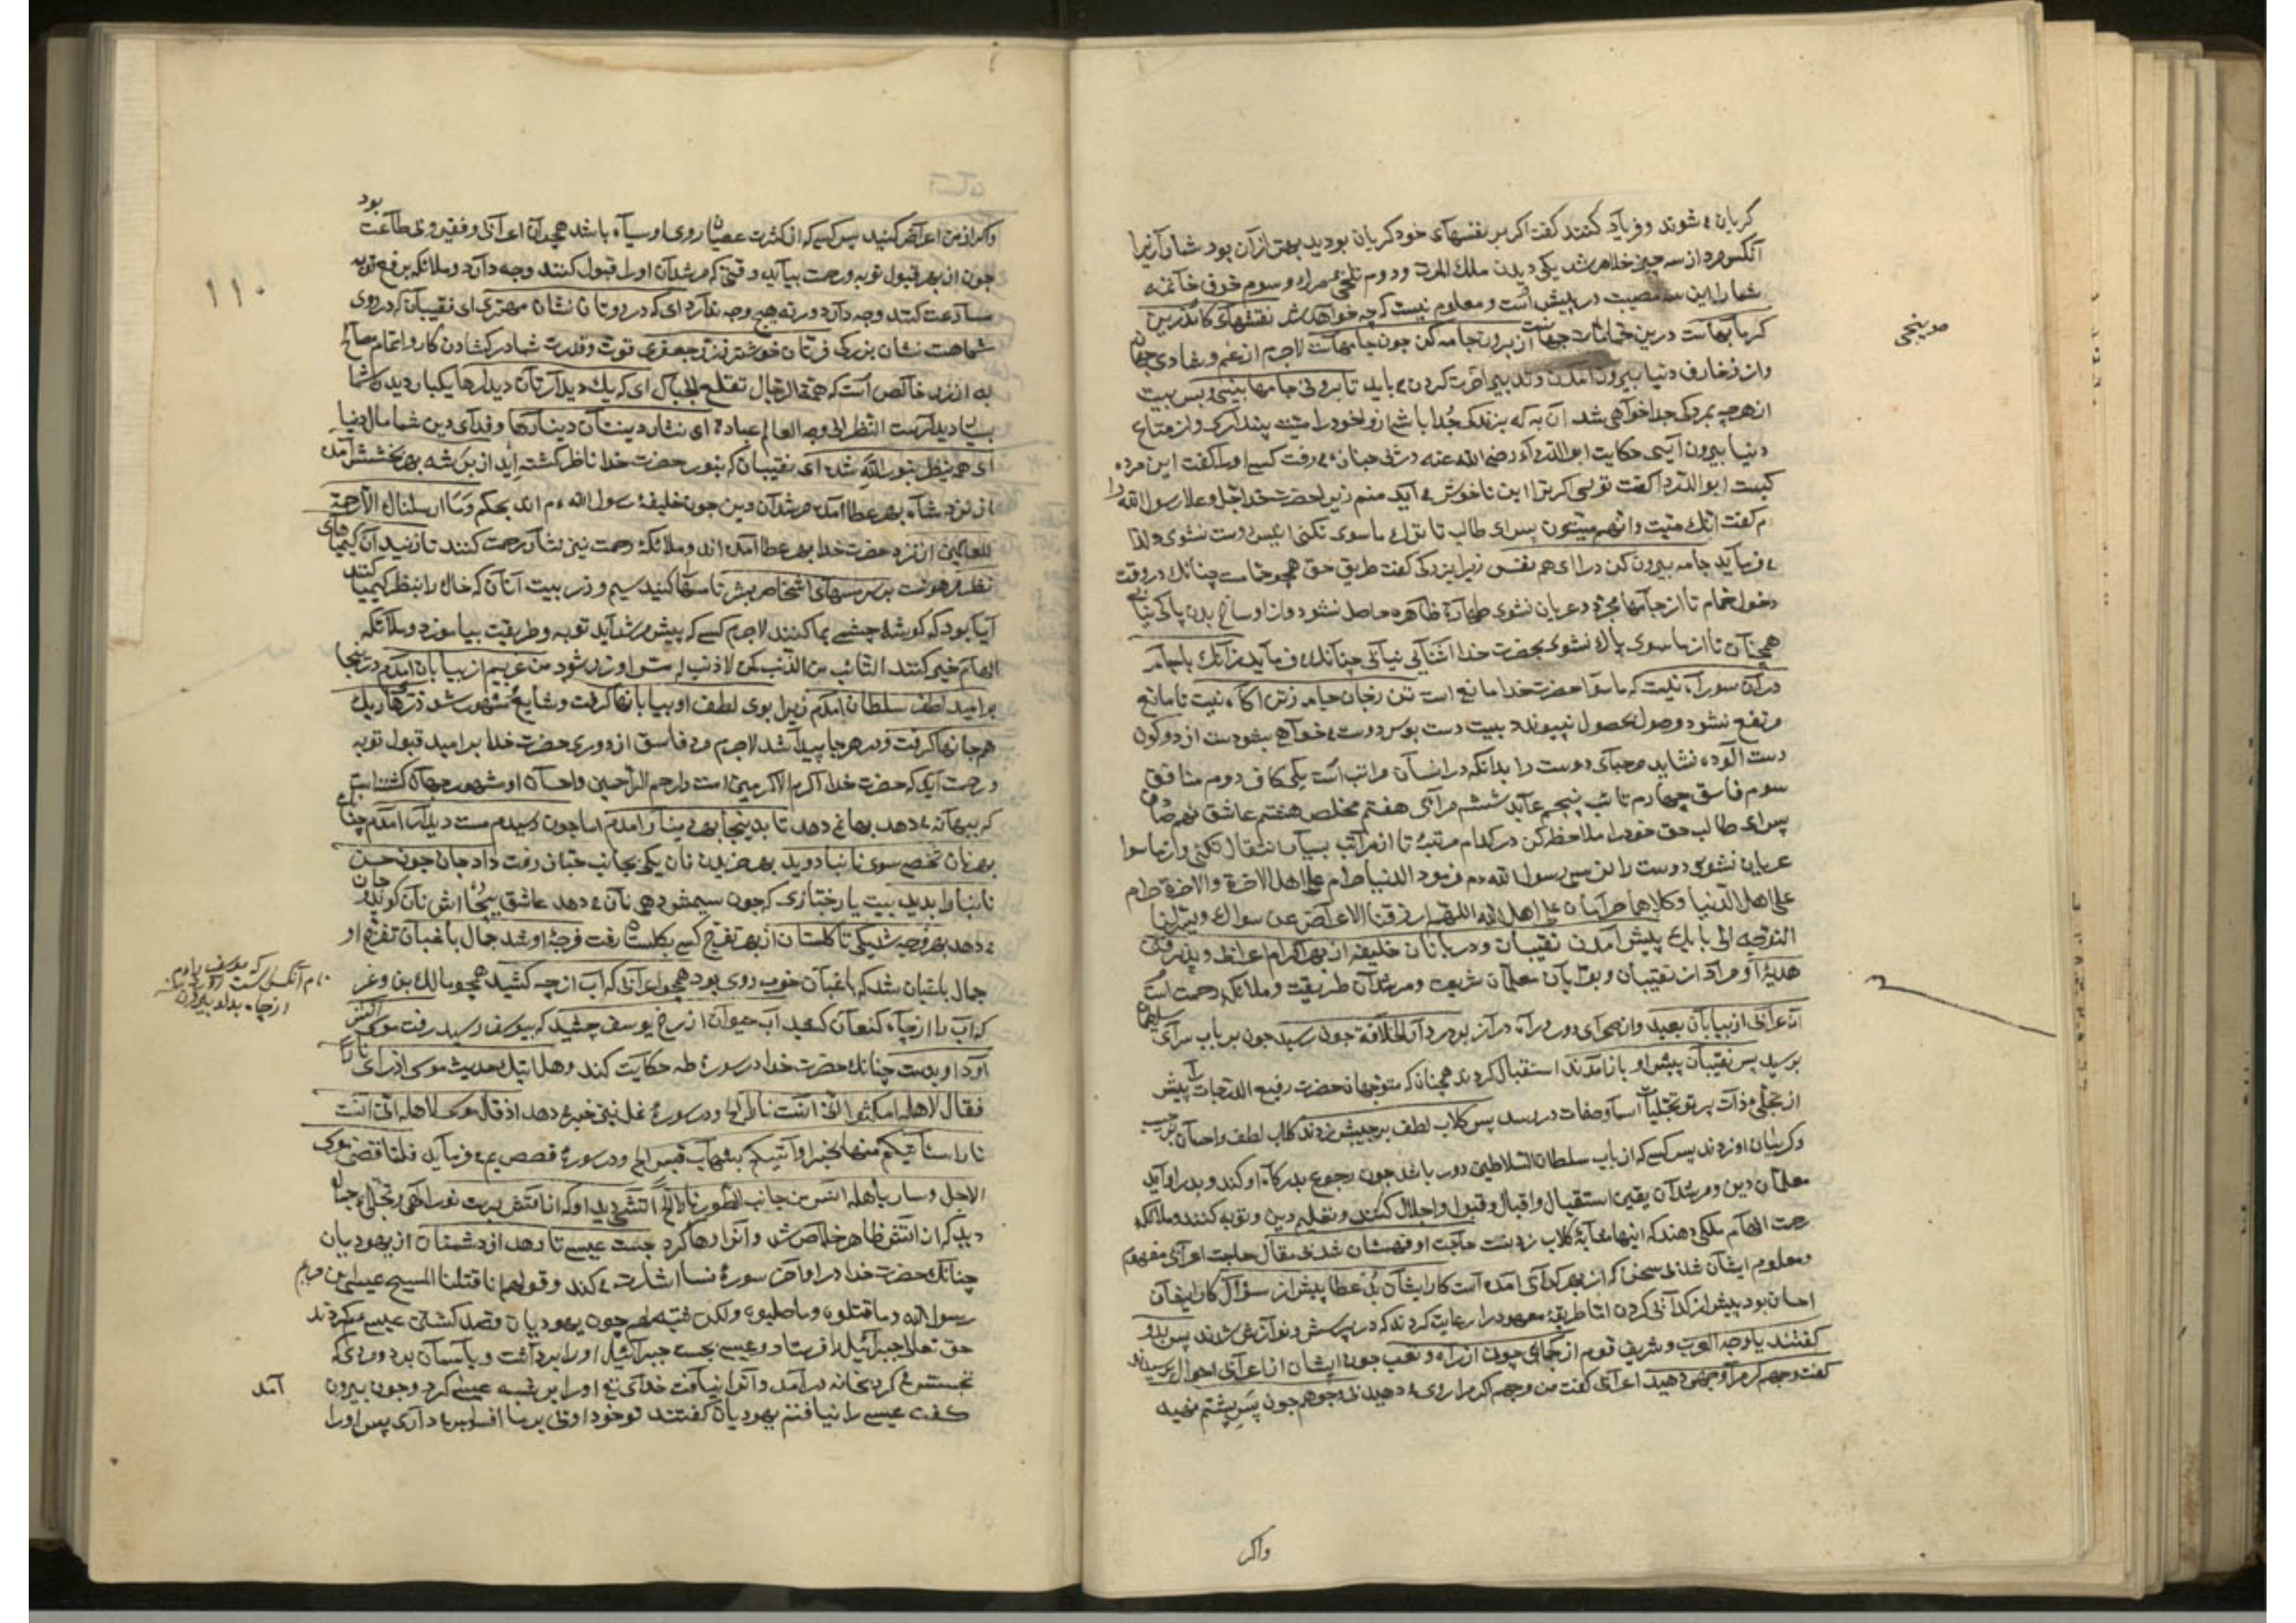 کریان می شوند و فریاد کنند کفت اکر بر نفسهای خود کریان بودید بهتر از آن بود شمارا زیرا
آنکس مرد از سه چیز خلاص شد یکی دیدن ملك الموت ودوم تلخی مرك و سوم خوف خاتمه
شما را این سه مصیبت در پیش است و معلوم نیست که چه خواهد شد نقشهای کاندرین
کرمابهاست از برون جامه کن چون جامهاست لاجرم از غم و شادی جهان
و از زخارف دنیا بیرون آمدن و تدبیر آخرت کردن می باید تا برونی جامها بینی و بس بیت
از هر چه بمردکی جدا خواهی شد آن به که بزندکی جدا باشی ازو خود را پند آرك و از متاع
دنیا بیرون آیی حکایت ابو الدرداء رضی الله عنه در پی جنازه می رفت کسی اورا کفت این مرده
کیست ابو الدردا کفت تویی اکر ترا این ناخوش می آید منم زیرا حضرت خدا عز وجل رسول الله را
م کفت انك میت وانهم میتون پس ای طالب تا ترك ما سوی نکنی
می فرماید جامه بیرون کن درا ای هم نفس زیرا بزرکی کفت طریق حق همچو حمامست چنانك در وقت
دخول حمام تا از جامها مجرد و عریان نشوی طهارة ظاهره حاصل نشود و از اوساخ بدن پاکی نیابی
همچنان تا از ما سوی پاك نشوی بحضرت خدا آشنایی نیابی چنانك می فرماید زآنك با جامه
در آن سو راه نیست که ما سوا حضرت خدا مانع است تن زجان جامه زتن آکاه نیست تا مانع
مرتفع نشود وصول بحصول نپیوندد بیت دست بوس دوست می خواهی بشو دست از دو کون
دست آلوده نشاید مرحبای دوست را بدانکه در انسان مراتب است یکی کافر دوم منافق
سوم فاسق چهارم تائب پنجم عابد ششم مرائی هفتم مخلص هشتم عاشق
پس ای طالب حق خود را ملاحظه کن در کدام مرتبهٔ تا از مراتب بسیار انتقال نکنی و از ما سوا
عریان نشوی دوست را نرسی رسول الله م فرمود الدنیا حرام علی اهل الآخرة والآخرة حرام
علی اهل الدنیا وکلاهما حرامان علی اهل الله اللهم ارزقنا الاعراض عن سواك ویسر لنا
التوجه الی بابك پیش آمدن نقیبان و دربانان خلیفه از بهر اکرام اعرابی و پذیرفتن
هدیهٔ او مراد از نقیبان و بوابان معلمان شریعت ومرشدان طریقت وملائکهٔ رحمت است
آن عرابی از بیابان بعید و از صحرای دور در راه دراز بر در دار الخلافه چون رسید چون بر باب سرای
برسید پس نقیبان پیش او باز آمدند استقبال کردند همچنان که متوجهان حضرت رفیع الدرجات را پیش
از تجلی ذات پرتو تجلیات اسما و صفات در رسد پس کلاب لطف بر جیبش زدند کلاب لطف واحسان بر جیب
وکریبان او زدند پس کسی که از باب سلطان السلاطین دور باشد چون رجوع بدرکاه او کند و بدر او آید
معلمان دین و مرشدان یقین استقبال و اقبال و قبول و اجلال کنند وتعلیم دین و توبه کنند وملائکه
رحمت الهام ملکی دهند که اینها بمثابهٔ کلاب زدنست حاجت او فهمشان شد بی مقال حاجت اعرابی مفهوم
ومعلوم ایشان شد بی سخن که از بهر کدایی آمده است کار ایشان بد عطا پیش از سؤال کار ایشان
احسان بود پیش از کدایی کردن اما طریقهٔ معهود را رعایت کردند که در پرسش ونوازش شدند پس بدو
کفتند یا وجه العرب و شریف قوم از کجایی چونی از راه و تعب چونی ایشان از اعرابی احوال پرسیدند
کفت وجهم کر مرا وجهی دهید اعرابی کفت من وجهم اکر مرا روی می دهید بی وجوهم چون پس پشتم نهید
صد پنجی
واکر
۱۱۰
بود
واکر از من اعراض کنید پس کسی که از کثرت عصیان روی او سیاه باشد همچو آن اعرابی وفقیر وبی طاعت
چون از بهر قبول توبه ورحمت بیاید وقتی که مرشدان اورا قبول کنند وجه دارد وملائکه بر فع توبه
مسارعت کنند وجه دارد ورنه هیچ وجه ندارد ای که در روتان نشان مهتری ای نقیبان که در روی
شما هست نشان بزرکی فرتان خوشتر ز زر جعفری قوت و قدرت شما در کشادن کار و اتمام مصالح
به از زر خالص است که همة الرجال تقلع الجبال ای که یك دیدارتان دیدارها یکبار دیدن شما
بسیار دیدارست النظر الی وجه العالم عبادة ای نثار دینتان دینارها و فدای دین شما مال دنیا
ای همه ینظر بنور الله شده ای نقیبان که بنور حضرت خدا ناظر کشته اید از بر شه بهر بخشش آمده
از نزد شاه بهر عطا آمده مرشدان دین چون خلیفهٔ رسول الله م اند بحکم وما ارسلناك الا رحمة
للعالمین از نزد حضرت خدا بهر عطا آمده اند و ملائکهٔ رحمت نیز نشار رحمت کنند تا زنید آن کیمیاهای
نظر بر سر مسهای اشخاص بشر تا مسها کنید سیم و زر بیت آنان که خاك را بنظر کیمیا کنند
آیا بود که کوشهٔ چشمی بما کنند لاجرم کسی که پیش مرشد آید توبه وطریقت بیاموزد وملائکه
الهام خیر کنند التائب من الذنب کمن لا ذنب له مس او زر شود من غریبم از بیابان آمدم
بر امید لطف سلطان آمدم زیرا بوی لطف او بیابانها کرفت وشایع مشهور شد ذرهای ریك
هم جانها کرفت و در هر جا پیدا شد لاجرم مرد فاسق از دور بحضرت خدا بر امید قبول توبه
و رحمت آید که حضرت خدا اکرم الاکرمین است وارحم الراحمین واحسان او مشهور جهان کشته است
که ببهانه می دهد بها نمی دهد تا بدینجا بهر دینار آمدم اما چون رسیدم مست دیدار آمدم چنانك
بهر نان شخصی سوی نانبا دوید بهر خریدن نان یکی بجانب خباز رفت داد جان چون حسن
نانبا را بدید بیت یا رختازی که چون سیمش دهی نان می دهد عاشق بیچاره اش نان کوید و جان
می دهد بهر فرجه شد یکی تا کلستان از بهر تفرج کسی بکلستان رفت فرجهٔ او شد جمال باغبان تفرج او
جمال باغبان شد که باغبان خوب روی بود همچو اعرابی که آب از چه کشید همچو مالك بن وعر
که آب را از چاه کنعان کشید آب حیوان از رخ یوسف چشید که بیوسف رسید رفت موسی کآتش
آورد او بدست چنانك حضرت خدا در سورهٔ طه حکایت کند وهل اتیك حدیث موسی اذ رأی نارا
فقال لاهله امکثوا انی آنست نارا و در سورهٔ نمل نیز خبر می دهد اذ قال موسی لاهله انی آنست
نارا سآتیکم منها بخبر او آتیکم بشهاب قبس و در سورهٔ قصص می فرماید فلما قضی موسی
الاجل وسار باهله آنس من جانب الطور نارا آتشی دید او که از آتش برست نور الهی و تجلی جمال
دید که از آتش ظاهر خلاص شد و آنرا رها کرد جست عیسی تا رهد از دشمنان از یهودیان
چنانك حضرت خدا در اواخر سورهٔ نسا اشارت می کند وقولهم انا قتلنا المسیح عیسی بن مریم
رسول الله وما قتلوه وما صلبوه ولکن شبه لهم چون یهودیان قصد کشتن عیسی می کردند
حق تعالی جبرائیل را فرستاد و عیسی بجست جبرائیل اورا برداشت و بآسمان برد مردی که
تجسس می کرد بخانه در آمد و آنرا نیافت خدای تع اورا بر شبه عیسی کرد و چون بیرون آمد
کفت عیسی را نیافتم یهودیان کفتند تو خود اوئی بر ما افسوس می داری پس اورا
نام آنکس است که یوسف را
از چاه بدلو بیرون